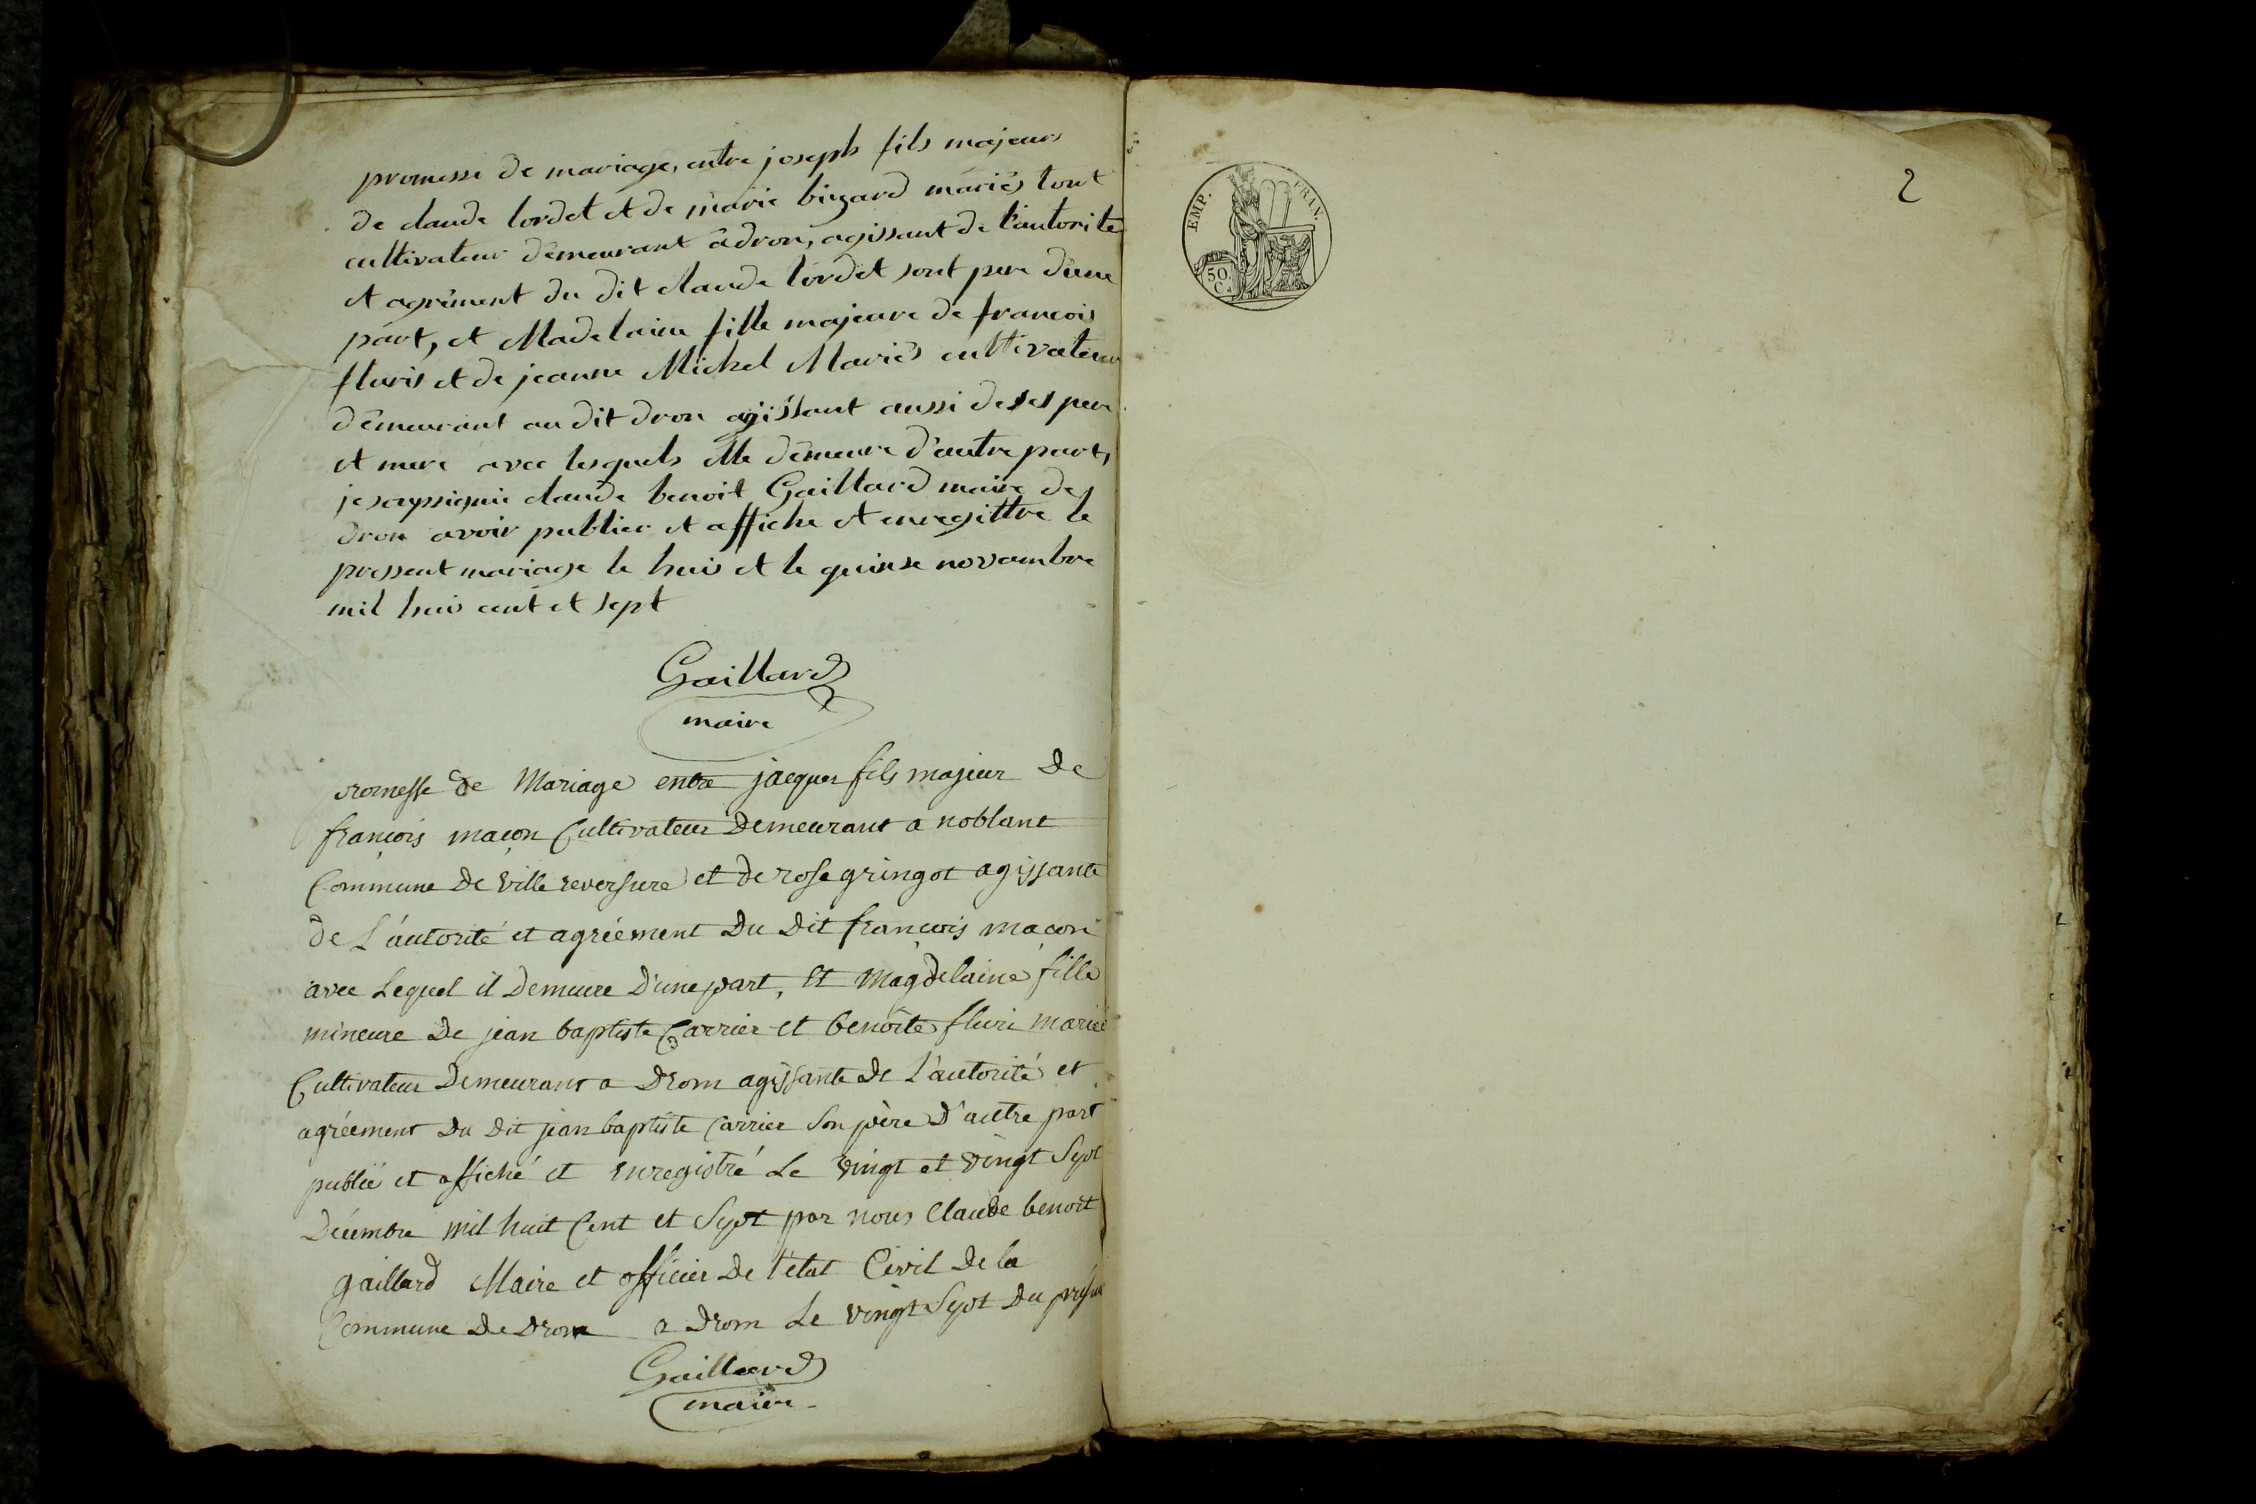 promesse de mariage, entre joseph fils majeurs
de claude lordet et de marie bizard mariés tout
cultivateur dêmeurant âdron, agissant de l'autorite
et agrêment du dit claude lordet sont pere dune
part, et Madelaine fille majeure de francois
fluris et de jeanne Michel Mariés cultivateur
dêmeurant au dit dron agissant aussi de ses pere
et mere avec lesquels elle dêmeure d'autre part,
je soussignié claude benoit Gaillard maire de
dron avoir publier et affiche et enregittre le
pressent mariage le huis et le quinse novambre
mil huis cent et sept
Gaillard
maire
promesse de Mariage entre jacques fils majeur de
françois maçon Cultivateur Demeurant a noblant
Commune de ville reversure et de rose gringot agissante
de L'autorité et agréement Du Dit françois maçon
avec Lequel il Demeure D'une part, et Magdelaine fille
mineure De jean baptiste Carrier et benoite fluri mariés
Cultivateur Demeurant a Drom agissante de L'autorité et
agréement Du Dit jean baptiste Carrier Son père D'autre part
publié et affiché et enregistré Le vingt et vingt Sept
Décembre mil huit Cent et Sept par nous Claude benoit
gaillard Maire et officier De l'état Civil De la
Commune De Drom a Drom Le vingt Sept Du présent
Gaillard
maire
EMP. FRAN.
50
C.
2